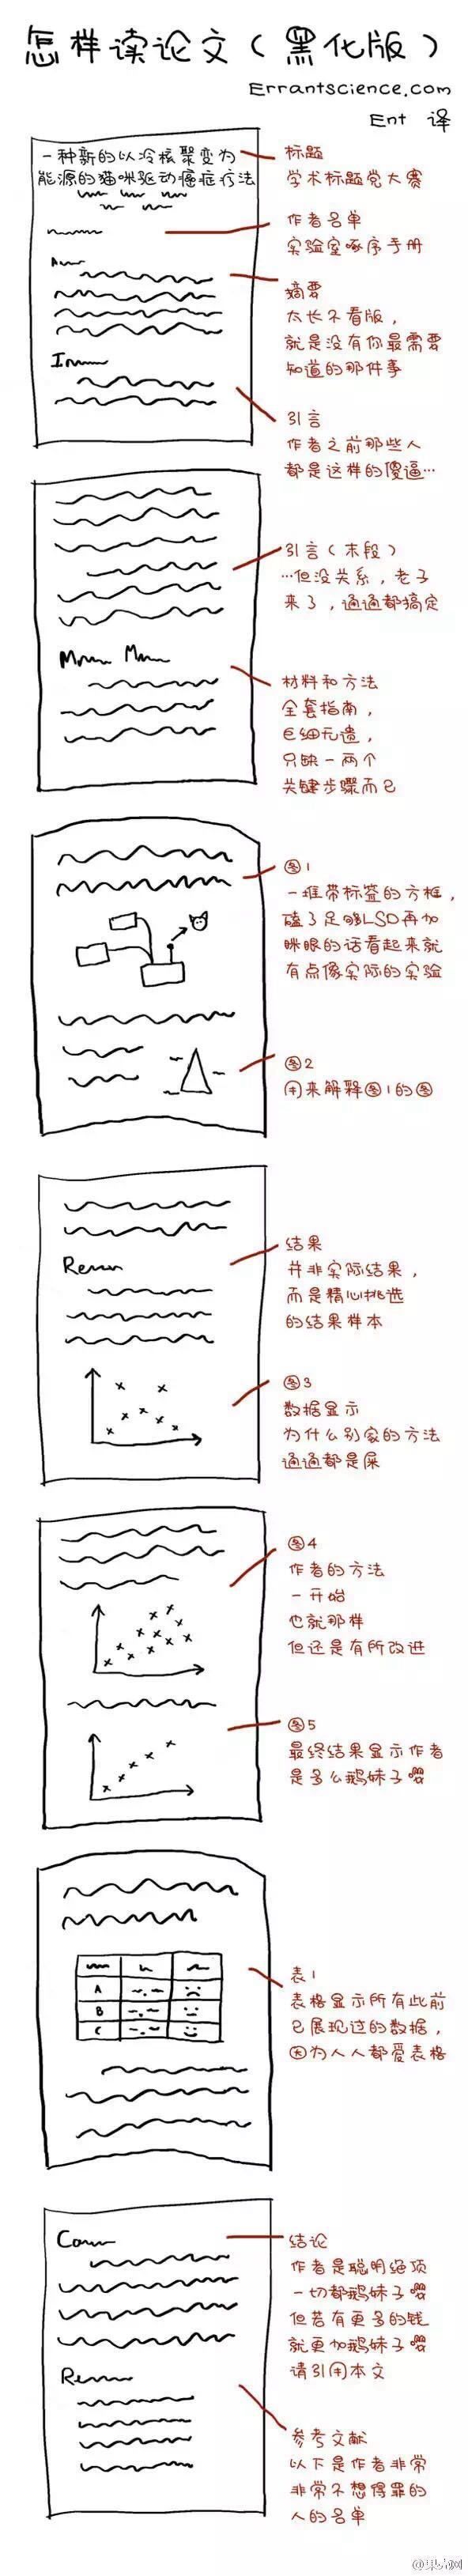 怎样读论文(黑化版)
Errantscience.com
Ent 译
一种新的以冷核聚变为
能源的猫咪驱动癌症疗法
标题
学术标题党大赛
作者名单
实验室啄序手册
摘要
太长不看版,
就是没有你最需要
知道的那件事
引言
作者之前那些人
都是这样的傻逼…
引言(末段)
…但没关系,老子
来了,通通都搞定
材料和方法
全套指南,
巨细无遗,
只缺一两个
关键步骤而已
图1
一堆带标签的方框,
磕了足够LSD再加
眯眼的话看起来就
有点像实际的实验
图2
用来解释图1的图
结果
并非实际结果,
而是精心挑选
的结果样本
图3
数据显示
为什么别家的方法
通通都是屎
图4
作者的方法
一开始
也就那样
但还是有所改进
图5
最终结果显示作者
是多么鹅妹子嘤
A
B
C
表1
表格显示所有此前
已展现过的数据,
因为人人都爱表格
结论
作者是聪明绝顶
一切都鹅妹子嘤
但若有更多的钱
就更加鹅妹子嘤
请引用本文
参考文献
以下是作者非常
非常不想得罪的
人的名单
@果壳网